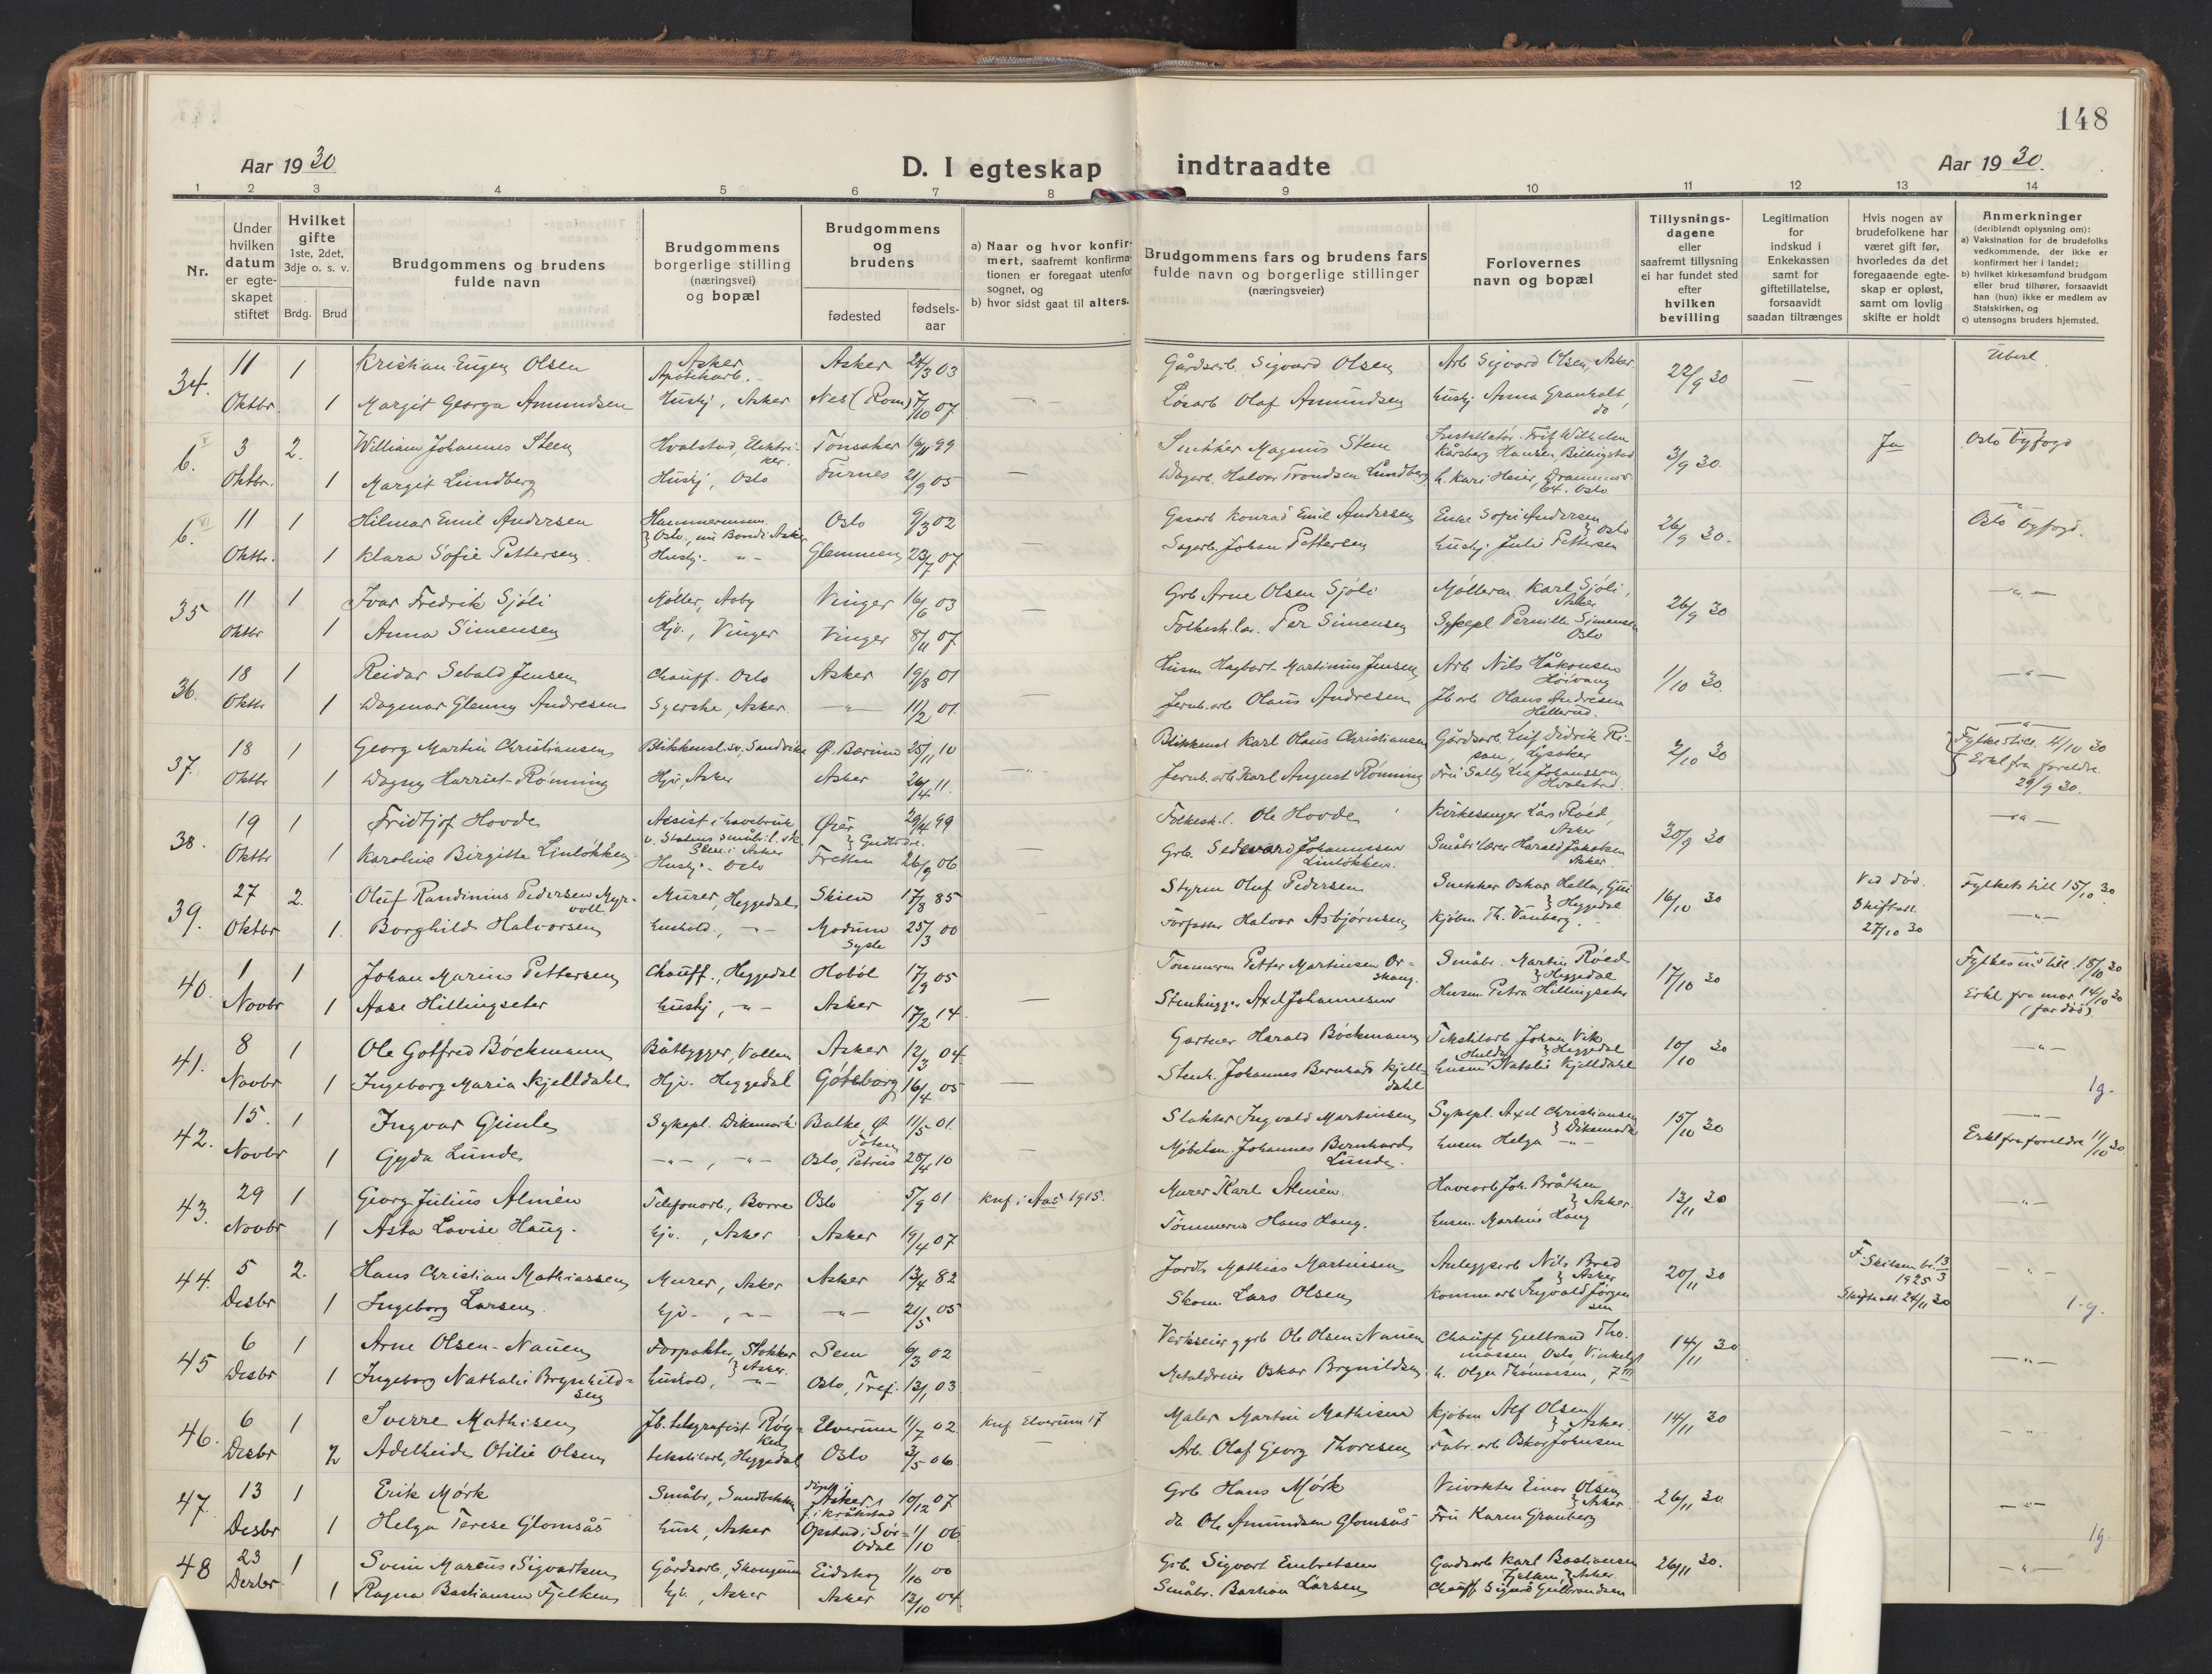 148
Aar 1930
D. I egteskap indtraadte
Aar 1930.
1 2 3 4 5 6 7 8 9 10 11 12 13 14
Nr.
Under hvilken datum er egte-skapet stiftet
Hvilket gifte 1ste, 2det, 3dje o. s. v.
Brdg. Brud
Brudgommens og brudens fulde navn
Brudgommens borgerlige stilling (næringsvei) og bopæl
Brudgommens og brudens
fødested
fødsels-aar
a) Naar og hvor konfir-mert, saafremt konfirma-tionen er foregaat utenfor sognet, og
b) hvor sidst gaat til alters.
Brudgommens fars og brudens fars fulde navn og borgerlige stillinger (næringsveier)
Forlovernes navn og bopæl
Tillysnings-dagene eller saafremt tillysning ei har fundet sted efter hvilken bevilling
Legitimation for indskud i Enkekassen samt for giftetillatelse, forsaavidt saadan tiltrænges
Hvis nogen av brudefolkene har været gift før, hvorledes da det foregaaende egte-skap er opløst, samt om lovlig skifte er holdt
Anmerkninger (deriblandt oplysning om):
a) Vaksination for de brudefolks vedkommende, der ikke er konfirmert her i landet;
b) hvilket kirkesamfund brudgom eller brud tilhører, forsaavidt han (hun) ikke er medlem av Statskirken, og
c) utensogns bruders hjemsted.
34. 11 1 Kristian Eugen Olsen Asker Apotekarb. Asker 24/3 03 Gårdsarb. Sigvard Olsen Arb Sigvard Olsen, Asker 22/9 30
Oktbr. 1 Margit Georga Amundsen Hushj, Asker Nes (Rom) 7/10 07 Løsarb Olaf Amundsen Hushj Anna Granholt, do
6. V 3 2. William Johannes Steen Hvalstad, Elektriker Tønsaker 16/11 99 Snekker Magnus Steen Installatør Fritz Wilhelm Kårsberg Hansen Billingstad 3/9 30. Ja Oslo byfogd
Oktbr. 1 Margit Lundberg Hushj, Oslo Furnes 21/9 05 Dagarb. Halvor Trondsen Lundberg h. Kari Heier, Drammensv 64. Oslo
6. VI 11 1 Hilmar Emil Andersen Hammermann Oslo, nu Bondi Asker Oslo 9/3 02 Gasarb Konrad Emil Andersen Enke Sofie Andersen } Oslo 26/9 30. Oslo byfogd.
Oktbr. 1 Klara Sofie Pettersen Hushj. -"- Glemmen 23/7 07 Sagarb. Johan Pettersen Hushj Julie Pettersen
35 11 1 Ivar Fredrik Sjøli Møller, Aaby Vinger 16/6 03 Grb Arne Olsen Sjøli Møllerm. Karl Sjøli, Asker 26/9 30 -"-
Oktbr 1 Anna Simensen Hjv., Vinger Vinger 8/11 07 Folkesk.lær. Per Simensen Sykepl Pernille Simensen Oslo
36. 18 1 Reidar Sebald Jensen Chauff. Oslo Asker 19/8 01 Husm Hagbart Martinius Jensen Arb Nils Håkonsen Høivang 1/10 30. -"-
Oktbr 1 Dagmar Glenny Andresen Syerske, Asker. -"- 11/2 01. Jernb.arb Olaus Andresen Jb arb Olaus Andresen Hellerud.
37. 18 1 Georg Martin Christiansen Blikkensl.sv. Sandvika Ø. Bærum 25/11 10 Blikkensl Karl Olaus Christiansen Gårdsarb. Leif Didrik Ri- Lysaker 2/10 30 -"- Fylkestill. 4/10 30
Oktbr 1 Dagny Harriet Rønning Hjv, Asker Asker 26/4 11. Jernb.arb Karl August Rønning Fru Sally Johanssen Hvalstad. Erkl fra foreldre. 29/9 30.
38. 19 1 Fridtjof Hovde Assist i havebruk v. Statens småbr.l.sk. i Asker Øier 29/4 99 Folkesk.l. Ole Hovde Kirkesanger Lars Røed, Asker 30/9 30 -"-
Oktbr 1 Karoline Birgitte Linløkken Hushj. Oslo Fretten } Gudbr.d. 26/9 06 Grb. Sedevard Johannesen Linløkken. Småbr.lærer Harald Jakobsen Asker.
39. 27 2. Oluf Randinius Pedersen Myrvoll Murer, Heggedal Skien 17/8 85 Styrm Oluf Pedersen Snekker Oskar Hella, } Heggedal 16/10 30 Ved død. Skifteatt. 27/10 30 Fylkets till 15/10 30.
Oktbr 1. Borghild Halvorsen Hushold., -"- Modum Sysle 25/3 00 Forfatter Halvor Asbjørnsen Kjøbm Th. Vauberg. -"-
40. 1 1 Johan Marius Pettersen Chauff., Heggedal Hobøl 17/9 05 Tømmerm Petter Martinsen Orskaug. Småbr. Martin Røed } Heggedal 17/10 30 Fylkesm till. 18/10 30
Novbr 1 Aase Hillingseter Hushj, -"- Asker 17/2 14 Stenhugger Axel Johannesen Husm Petra Hillingseter Erkl fra mor 14/10 30 (far død)
41. 8 1 Ole Gotfred Bøckmann Båtbygger, Vollen Asker 12/3 04 Gartner Harald Bøckmann Tekstilarb Johan Vik } Heggedal 10/10 30 -"-
Novbr 1 Ingeborg Maria Kjelldahl Hjv. Heggedal Gøteborg 16/4 05 Stenh. Johannes Bernhard Kjelldahl Husm Hulda Natalie Kjelldahl 1g.
42. 15. 1 Ingvar Gimle Sykepl. Dikemark Balke, Ø Toten 11/5 01 Slakter Ingvald Martinsen Sykepl. Axel Christiansen } Dikemark 15/10 30 -"-
Novbr 1 Gyda Lunde -"-, -"- Oslo, Petrus 28/4 10 Møbelsn. Johannes Bernhard Lunde. Husm Helga -"- Erkl fra foreldre 11/10 30
43. 29 1 Georg Julius Almèn Telefonarb., Borre Oslo 5/9 01 Knf. i Aas 1915. Murer Karl Almèn. Havearb Joh. Bråthen } Asker. 13/11 30 -"-
Novbr 1 Asta Lovise Haug. Hjv., Asker Asker 19/4 07 Tømmerm Hans Haug. Husm. Martine Haug
44. 5 2. Hans Christian Mathiassen Murer, Asker Asker 13/4 82 Jordbr Mathias Martinsen Anleggsarb Nils Bred } Asker 20/11 30 F. Skilsm.br. 13/3 1925 -"-
Desbr 1 Ingeborg Larsen. Hjv., -"- -"- 21/5 05 Skom. Lars Olsen Komm.arb Ingvald Jørgensen Skifteatt. 24/11 30 1-g.
45 6 1 Arne Olsen-Nauen Forpakter, Stokker Sem 6/3 02 Verkseier g grb Ole Olsen-Nauen Chauff Gulbrand Thomassen Oslo Vinkelgt 14/11 30 -"-
Desbr 1 Ingeborg Nathalie Brynhildsen Hushold, } Asker. -"- Oslo, Tref. 13/1 03 Metaldreier Oskar Brynildsen h. Olga Thomassen, 7 III
46. 6 1 Sverre Mathisen Jb. telegrafist Røyken Elverum 11/7 02 Knf Elverum 17 Maler Martin Mathisen Kjøbm Alf Olsen } Asker. 14/11 30 -"-
Desbr 2 Adelheid Otilie Olsen tekstilarb, Heggedal Oslo 3/5 06 Arb. Olaf Georg Thoresen Fabr.arb Oskar Johnsen
47. 13 1 Erik Mørk Småbr, Sundbekken døpt i Asker, f. i Kråkstad 10/12 07 Grb Hans Mørk Veivokter Einar Olsen } Asker. 26/11 30. -"-
Desbr 1 Helga Terese Glomsås Hush, Asker Opstad i Sør-Odal 1/10 06 do Ole Amundsen Glomsås Fru Karen Granberg 1g.
48 23 1 Svein Marcus Sigvartsen Gårdsarb, Skaugum Eidskog 1/10 00 Grb. Sigvart Embretsen Gårdsarb Karl Bastiansen Fjelken } Asker. 26/11 30. -"-
Desbr. 1 Ragna Bastiansen Fjelken Hjv., Asker Asker 13/10 04. Småbr. Bastian Larsen Chauff Sigurd Gulbrandsen